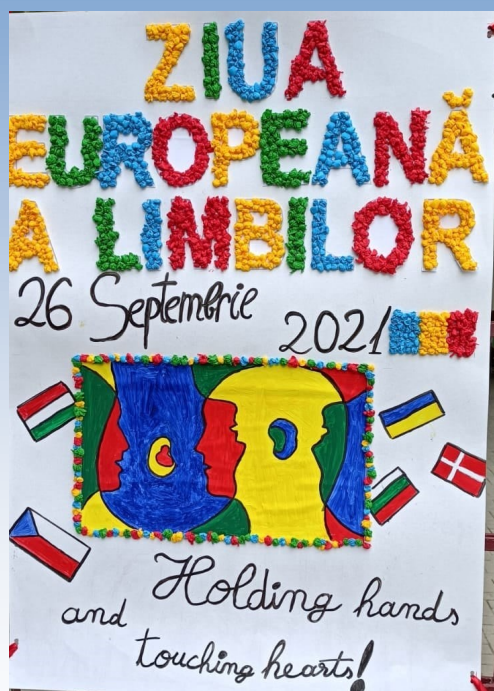 ZIUA
EUROPEANĂ
A LIMBILOR
26 Septembrie 2021
Holding hands
and
touching hearts!